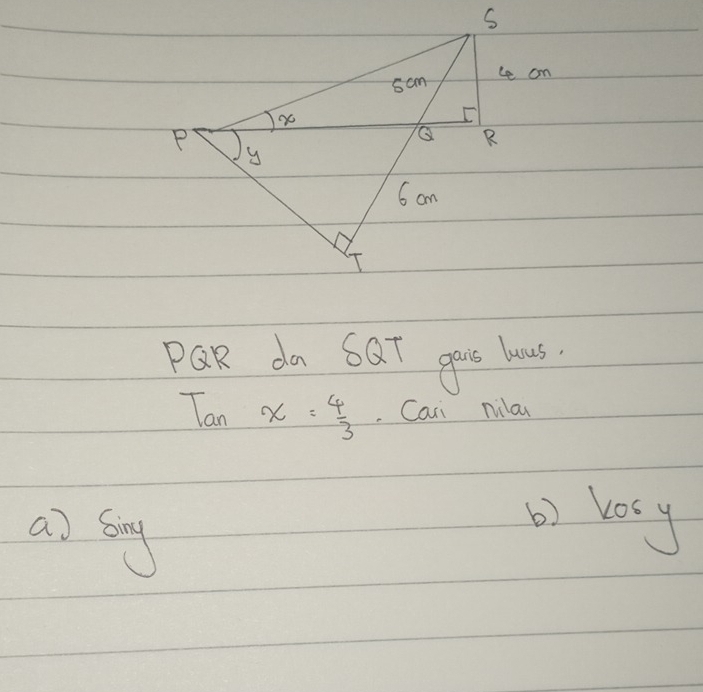 S
5cm
4 cm
x
P
Q
R
y
6 cm
T
PQR dan SQT garis lurus.
Tan x = 4/3. Cari nilai
a) Sin y
b) kos y